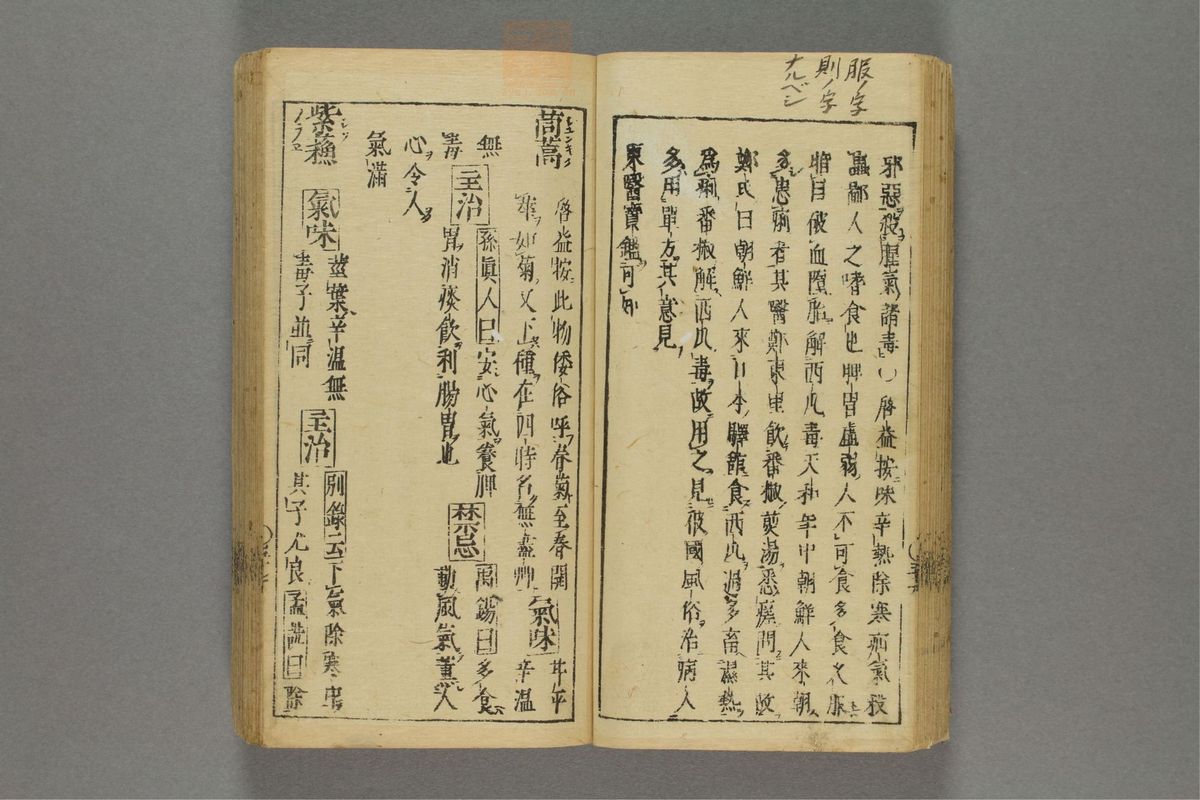 服ノ字
則ノ字
ナルベシ
邪惡殺腥氣諸毒○啓益按味辛熱除寒疝氣殺
蟲鄙人之嗜食也脾胃虛弱人不可食多食久服
損目破血墮胎解西瓜毒天和年中朝鮮人來朝
多患痢者其醫鄭東里飲番椒煎湯悉瘥問其故
鄭氏曰朝鮮人來日本驛館食西瓜過多畜濕熱
為痢番椒解西瓜毒故用之見彼國風俗治病人
多用單方其意見
東醫寶鑑可知
茼蒿
啓益按此物倭俗呼春菊至春開
華如菊又下種在四時名無盡艸
氣味
甘平
辛溫
無
毒
主治
孫眞人曰安心氣養脾
胃消痰飲利腸胃也
禁忌
禹錫曰多食
動風氣薰人
心令人
氣滿
紫蘇
氣味
莖葉辛溫無
毒子並同
主治
別錄云下氣除寒中
其子尤良孟詵曰除